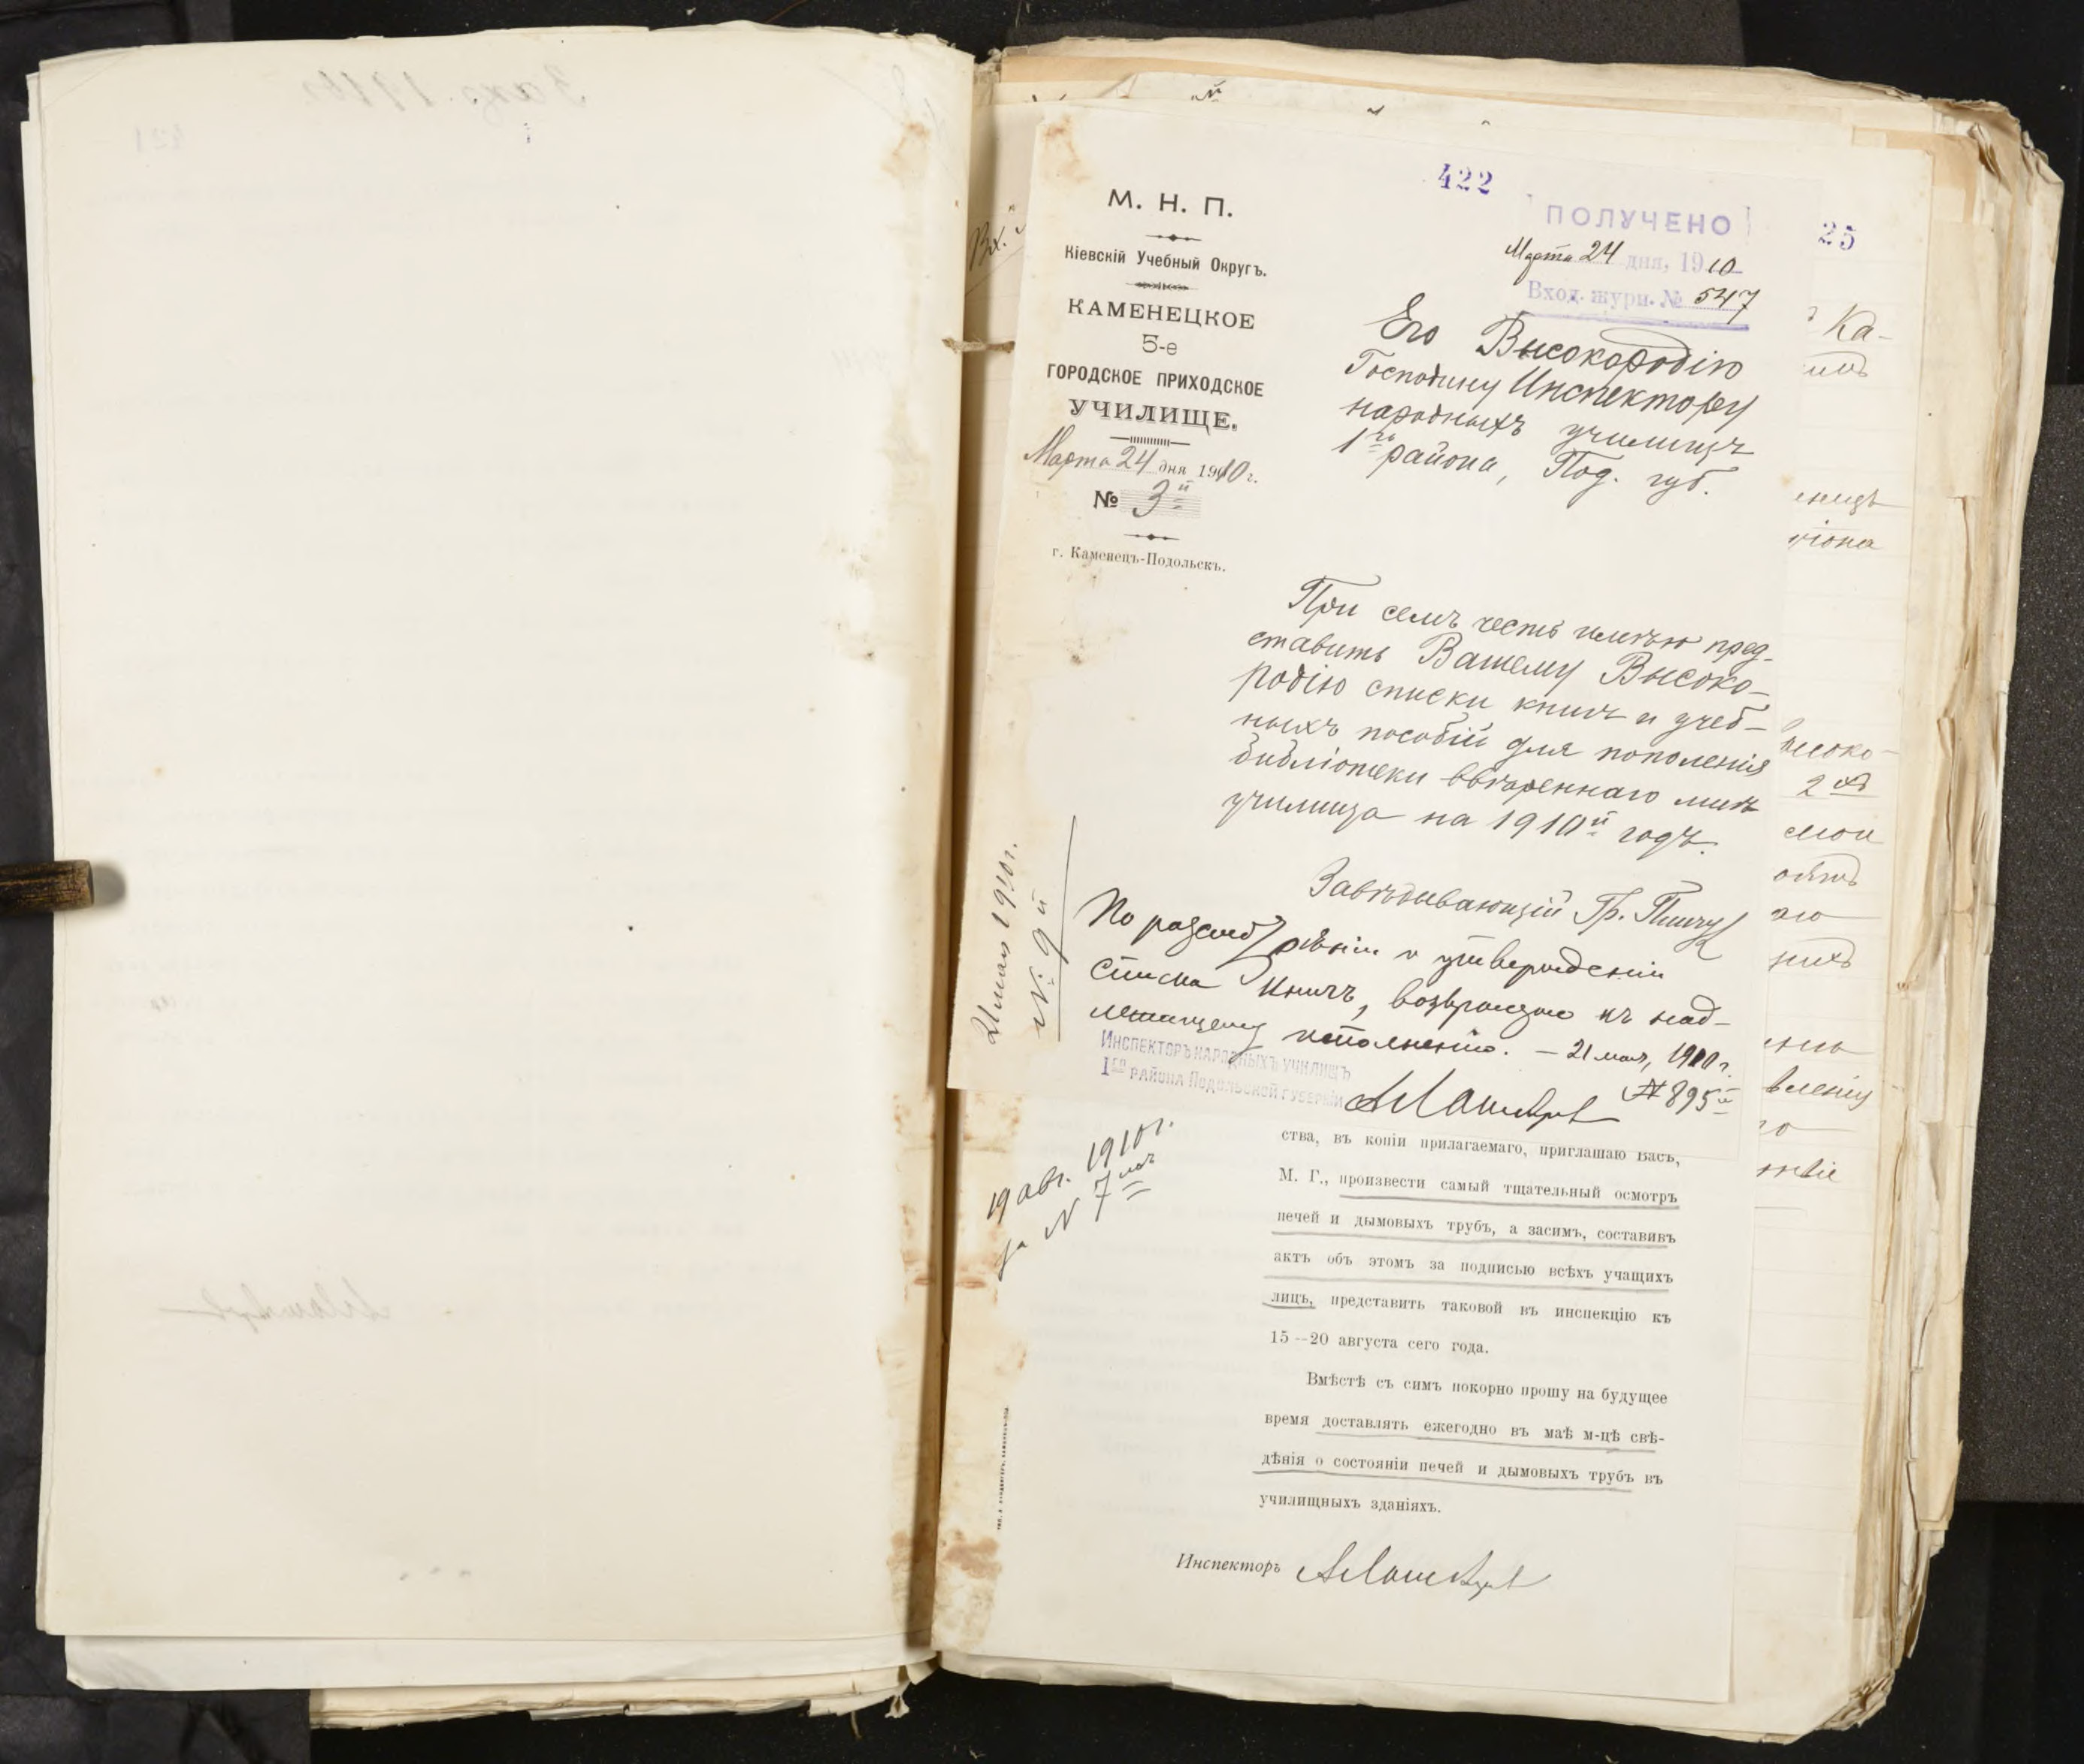 422
М. Н. П.
Кіевскій Учебный Округъ.
КАМЕНЕЦКОЕ
5-е
ГОРОДСКОЕ ПРИХОДСКОЕ
УЧИЛИЩЕ.
Марта 24 дня 1910 г.
№ 3й
г. Каменецъ-Подольскъ.
ПОЛУЧЕНО
Марта 24 дня, 1910
Вход. журн. № 547
25
Его Высокородію
Господину Инспектору
народныхъ училищъ
1го района, Под. губ.
При семъ честь имѣю пред-
ставить Вашему Высоко-
родію списки книгъ и учеб-
ныхъ пособій для пополенія
библіотеки ввѣреннаго мнѣ
училища на 1910й годъ.
Завѣдывающій Гр.
По разсмотрѣніи и утвержденіи
списка книгъ, возвращаю къ над-
лежащему исполненію. – 21 мая, 1910 г.
№ 895й
ИНСПЕКТОРЪ НАРОДНЫХЪ УЧИЛИЩЪ
1ГО РАЙОНА ПОДОЛЬСКОЙ ГУБЕРНІИ
21 мая 1910 г.
№ 9й
19 авг. 1910 г.
за № 7
ства, въ копіи прилагаемаго, приглашаю Васъ,
М. Г., произвести самый тщательный осмотръ
печей и дымовыхъ трубъ, а засимъ, составивъ
актъ объ этомъ за подписью всѣхъ учащихъ
лицъ, представить таковой въ инспекцію къ
15—20 августа сего года.
Вмѣстѣ съ симъ покорно прошу на будущее
время доставлять ежегодно въ маѣ м-цѣ свѣ-
дѣнія о состояніи печей и дымовыхъ трубъ въ
училищныхъ зданіяхъ.
Инспекторъ